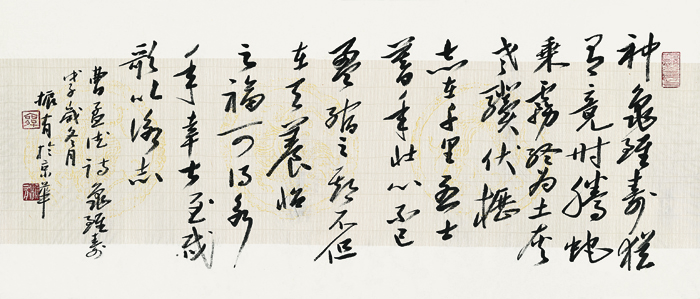 神龜雖壽猶
有竟时騰蛇
乘霧終为土灰
老驥伏櫪
志在千里烈士
暮年壯心不已
盈縮之期不但
在天養怡
之福可得永
年幸甚至哉
歌以詠志
曹孟德詩龜雖壽
戊子歲冬月
振有於京華